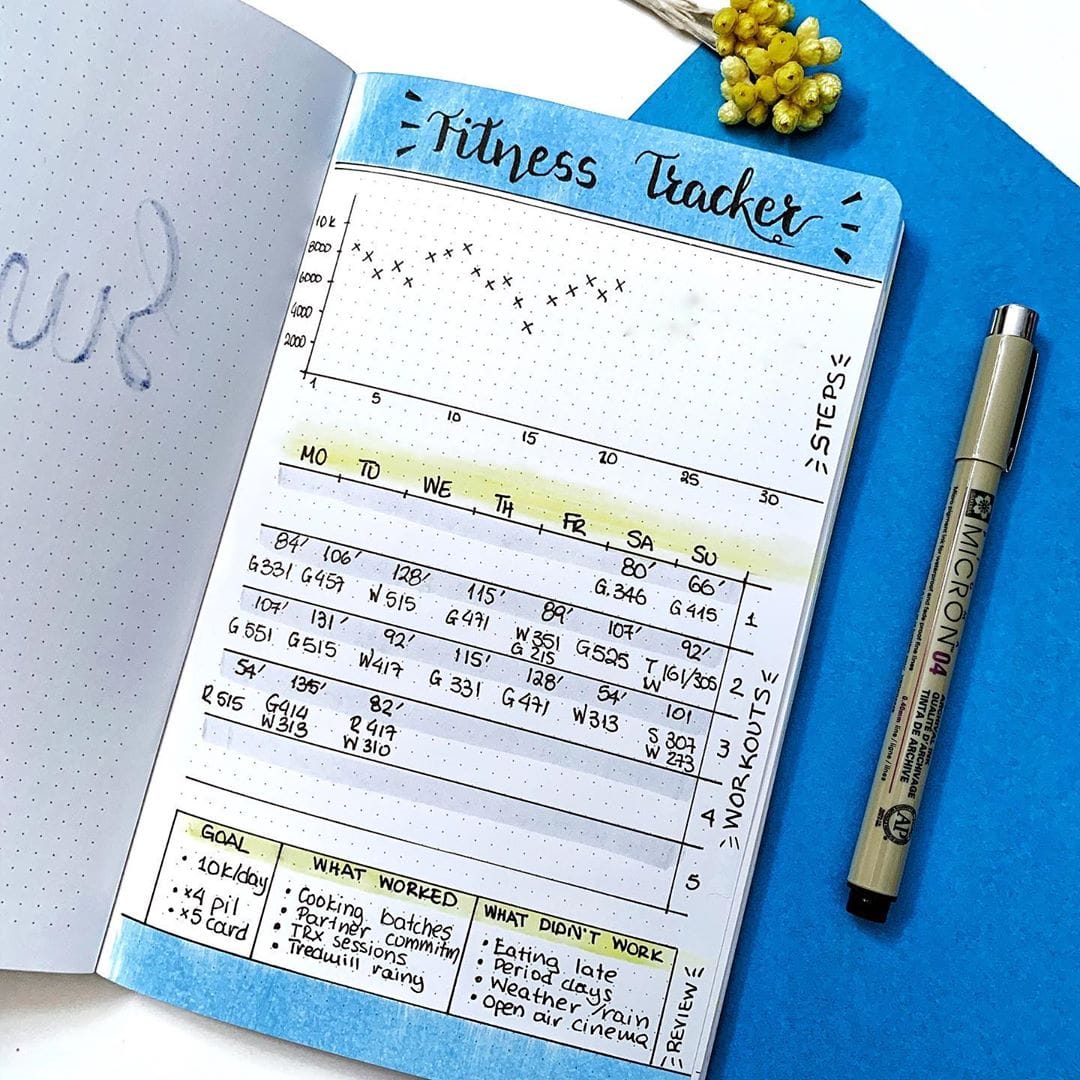 Fitness Tracker
10K
8000
6000
4000
2000
1 5 10 15 20 25 30
STEPS
MO TO WE TH FR SA SU
80' 66'
G.346 G415
1
84' 106' 128' 115' 89' 107' 92'
G331 G457 W515 G471 W351 G525 T 161/305
G215 W
2
107' 131' 92' 115' 128' 54' 101
G551 G515 W417 G.331 G471 W313 S 307
W 273
3
54' 135' 82'
R515 G414 R417
W313 W310
4
5
WORKOUTS
GOAL
• 10K/day
• x4 pil
• x5 card
WHAT WORKED
• Cooking batches
• Partner commitm
• TRX sessions
• Tredmill rainy
WHAT DIDN'T WORK
• Eating late
• Period days
• Weather/rain
• Open air cinema
REVIEW
MICRON 04
ARCHIVAL INK
QUALITÉ D'ARCHIVAGE
TINTA DE ARCHIVE
0.45mm line / ligne / línea
AP